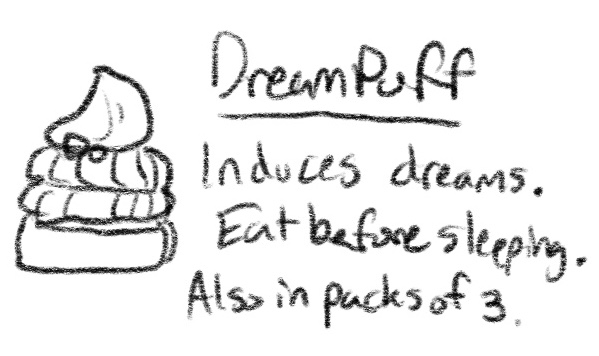 DreamPuff
Induces dreams.
Eat before sleeping.
Also in packs of 3.